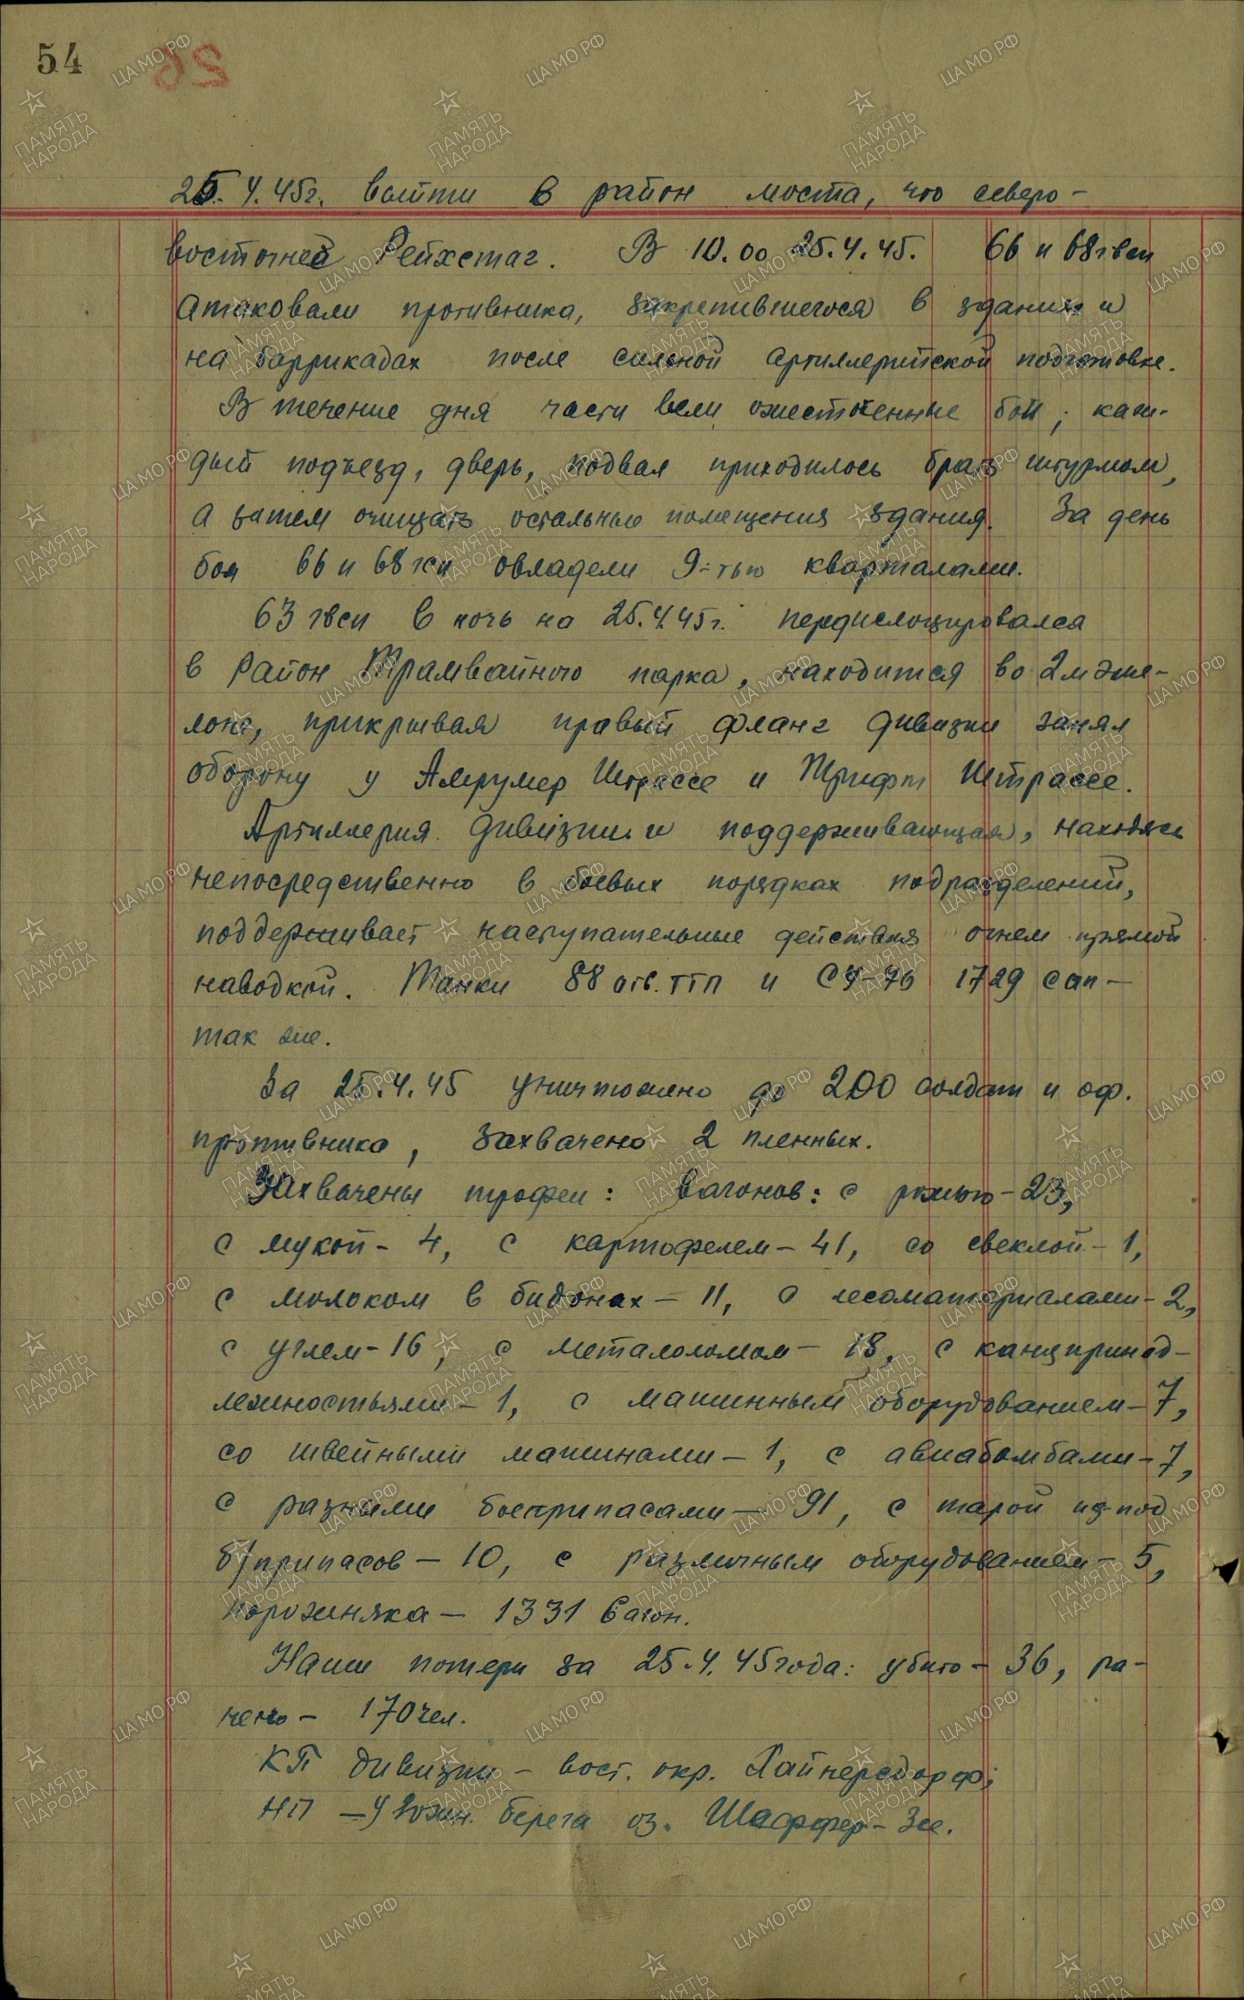 54
26
25.4.45г. выйти в район моста, что северо-
восточней Рейхстаг. В 10.00 25.4.45. 66 и 68 гвсп
атаковали противника, закрепившегося в здании и
на баррикадах после сильной артиллерийской подготовке.
В течение дня части вели ожесточенные бои, каж-
дый подъезд, дверь, подвал приходилось брать штурмом,
а затем очищать остальные помещения здания. За день
боя 66 и 68 гсп овладели 9-тью кварталами.
63 гвсп в ночь на 25.4.45г. передислоцировался
в район Трамвайного парка, находится во 2м эше-
лоне, прикрывая правый фланг дивизии занял
оборону у Амрумер Штрассе и Трифт Штрассе.
Артиллерия дивизии и поддерживающая, находясь
непосредственно в боевых порядках подразделений,
поддерживает наступательные действия огнем прямой
наводкой. Танки 88 отв. ТТП и СУ-76 1729 сап -
так же.
За 25.4.45 уничтожено до 200 солдат и оф.
противника, захвачено 2 пленных.
Захвачены трофеи: вагонов: с рожью - 23,
с мукой - 4, с картофелем - 41, со свеклой - 1,
с молоком в бидонах - 11, с лесоматериалами - 2,
с углем - 16, с металоломом - 18, с канцпринад-
лежностьями - 1, с машинным оборудованием - 7,
со швейными машинами - 1, с авиабомбами - 7,
с разными боеприпасами - 91, с тарой из-под
б/припасов - 10, с различным оборудованием - 5,
порожняка - 1331 вагон.
Наши потери за 25.4.45 года: убито - 36, ра-
нено - 170 чел.
КП дивизии - вост. окр. Хайнерсдорф;
НП - у южн. берега оз. Шеффер-Зее.